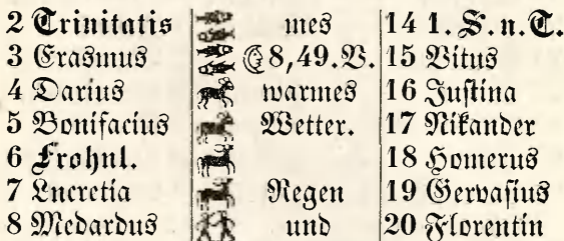 2 Trinitatis mes 14 1. S. n. T.
3 Erasmus 8,49. V. 15 Vitus
4 Darius warmes 16 Justina
5 Bonifacius Wetter. 17 Nikander
6 Frohnl. 18 Homerus
7 Lucretia Regen 19 Gervasius
8 Medardus und 20 Florentin